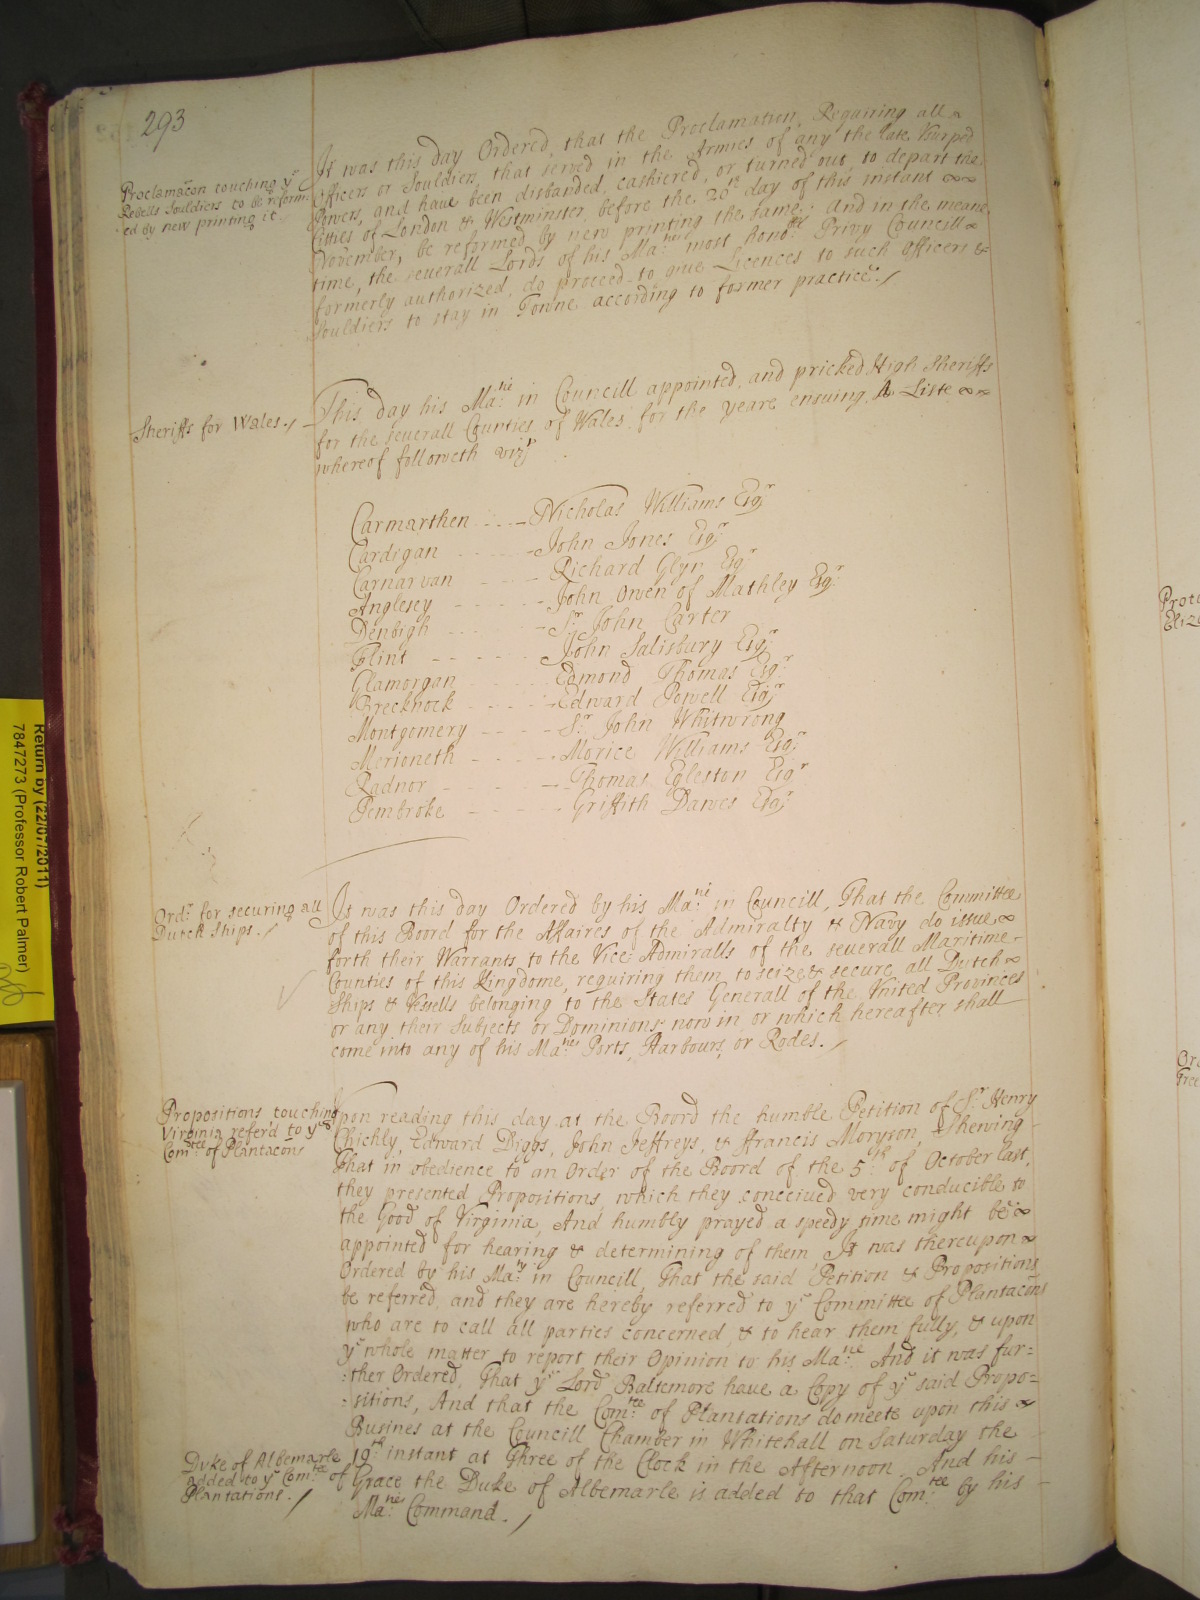 293
Proclamacon touching yͤ
Rebells Souldiers to be reform:
:ed by new printing it.
It was this day Ordered, that the Proclamation, Requiring all
Officers or Souldiers, that served in the Armies of any the late Usurped
Powers, and have been disbanded, cashiered, or turned out, to depart the
Citties of London & Westminster, before the 20th day of this instant
November, be reformed by new printing the same; And in the meane
time, the severall Lords of his Mats most honoble Privy Councill
formerly authorized, do proceed to give Licences to such Officers &
Souldiers to stay in Towne according to former practice./
Sheriffs for Wales./
This day his Matie in Councill appointed, and pricked High Sheriffs
for the severall Counties of Wales for the yeare ensuing, A Liste
whereof followeth vizt
Carmarthen - - - Nicholas Williams Esqr
Cardigan - - - - John Jones Esqr
Carnarvan - - - - Richard Glyn Esqr
Anglesey - - - - - John Owen of Mathley Esqr
Denbigh - - - - - Sr John Carter
Flint - - - - - John Salisbury Esqr
Glamorgan - - - - Edmond Thomas Esqr
Brecknock - - - - Edward Powell Esqr
Montgomery - - - - Sr John Whitwrong
Merioneth - - - - Morice Williams Esqr
Radnor - - - - - Thomas Egleston Esqr
Pembroke - - - - Griffith Dawes Esqr
Ordr for securing all
Dutch Ships./
It was this day Ordered by his Matie in Councill, That the Committee
of this Board for the Affaires of the Admiralty & Navy do issue
forth their Warrants to the Vice Admiralls of the severall Maritime
Counties of this Kingdome, requiring them to seize & secure all Dutch
Ships & Vessells belonging to the States Generall of the United Provinces
or any their Subjects or Dominions now in, or which hereafter shall
come into any of his Maties Ports, Harbours, or Rodes./
Propositions touching
Virginia referd to yͤ
Comttee of Plantacons
Upon reading this day at the Boord the humble Petition of Sr Henry
Chichly, Edward Diggs, John Jeffreys, & Francis Moryson, Shewing
That in obedience to an Order of the Boord of the 5th of October last,
they presented Propositions, which they conceived very conducible to
the Good of Virginia, And humbly prayed a speedy time might be
appointed for hearing & determining of them It was thereupon
Ordered by his Maty in Councill, That the said Petition & Propositions
be referred, and they are hereby referred to yͤ Committee of Plantacons
who are to call all parties concerned, & to hear them fully, & upon
yͤ whole matter to report their Opinion to his Matie. And it was fur=
:ther Ordered, That yͤ Lord Baltemore have a Copy of yͤ said Propo=
:sitions, And that the Comttee of Plantations do meete upon this
Busines at the Councill Chamber in Whitehall on Saturday the
19th instant at Three of the Clock in the Afternoon. And his
Grace the Duke of Albemarle is added to that Comttee by his
Maties Command./
Duke of Albemarle
added to yͤ Comttee of
Plantations./
Return by (22/07/2011)
7847273 (Professor Robert Palmer)